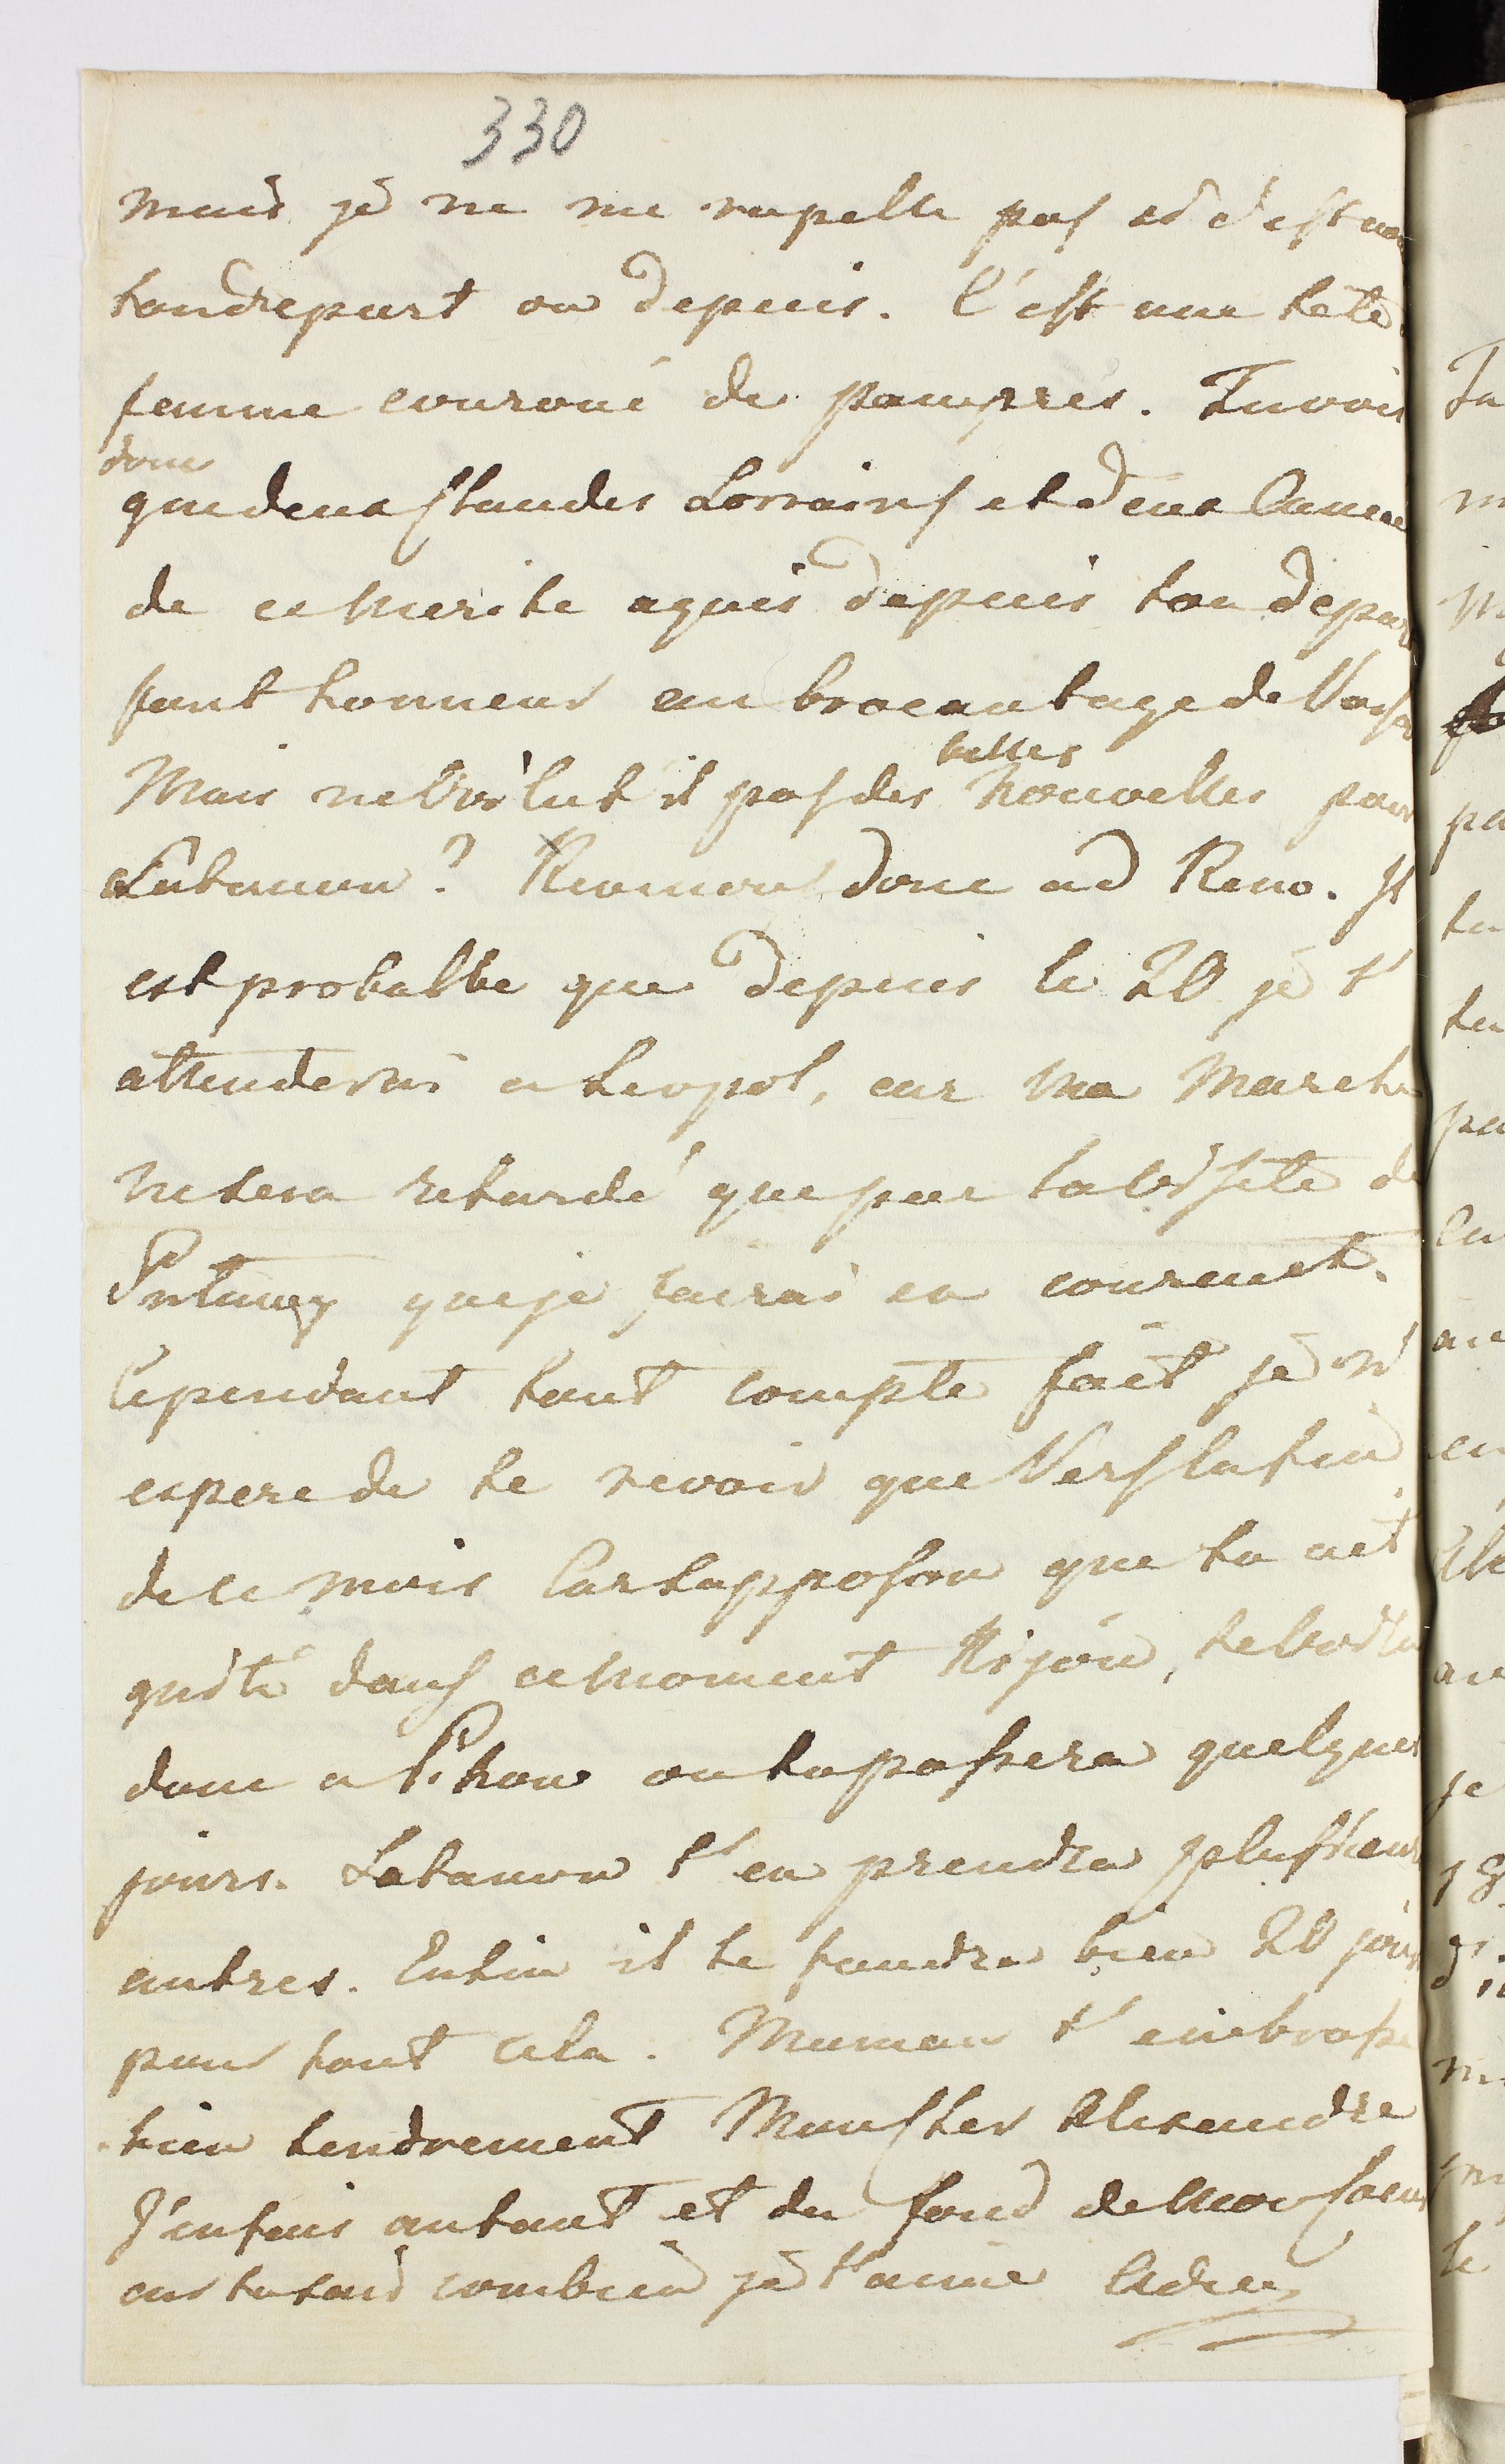 330
mais je ne me rapelle pas si c'est avan
tondepart ou depuis. C'est une tete
femme couroné de pampres. Tu vois
donc
que deux Claudes Lorrains et deux Camee
de ce merite aquis depuis ton depart
font honneur au brocantage de Varso
Mais ne vient il pas des belles nouvelles pour
Labunie? Revenons donc ad Rem. Il
est probable que depuis le 20 je t'
attenderai a Leopol, car ma marche
ne sera retardé que par la visite de
que je ferai en courant.
Cependant tout compte fait je n'
espere de te revoir que Vers la fin
de ce mois Car supposon que tu ait
quité dans ce moment Kijow, te voila
donc a ou tu passera quelques
jours. t'en prendra plusieurs
autres. Enfin il te faudra bien 20 jours
pour tout cela. Maman t'embrasse
bien tendrement Mons cher Alexandre
J'en fais autant et du fond de mon Coeur
car tu sais combien je t'aime Adieu